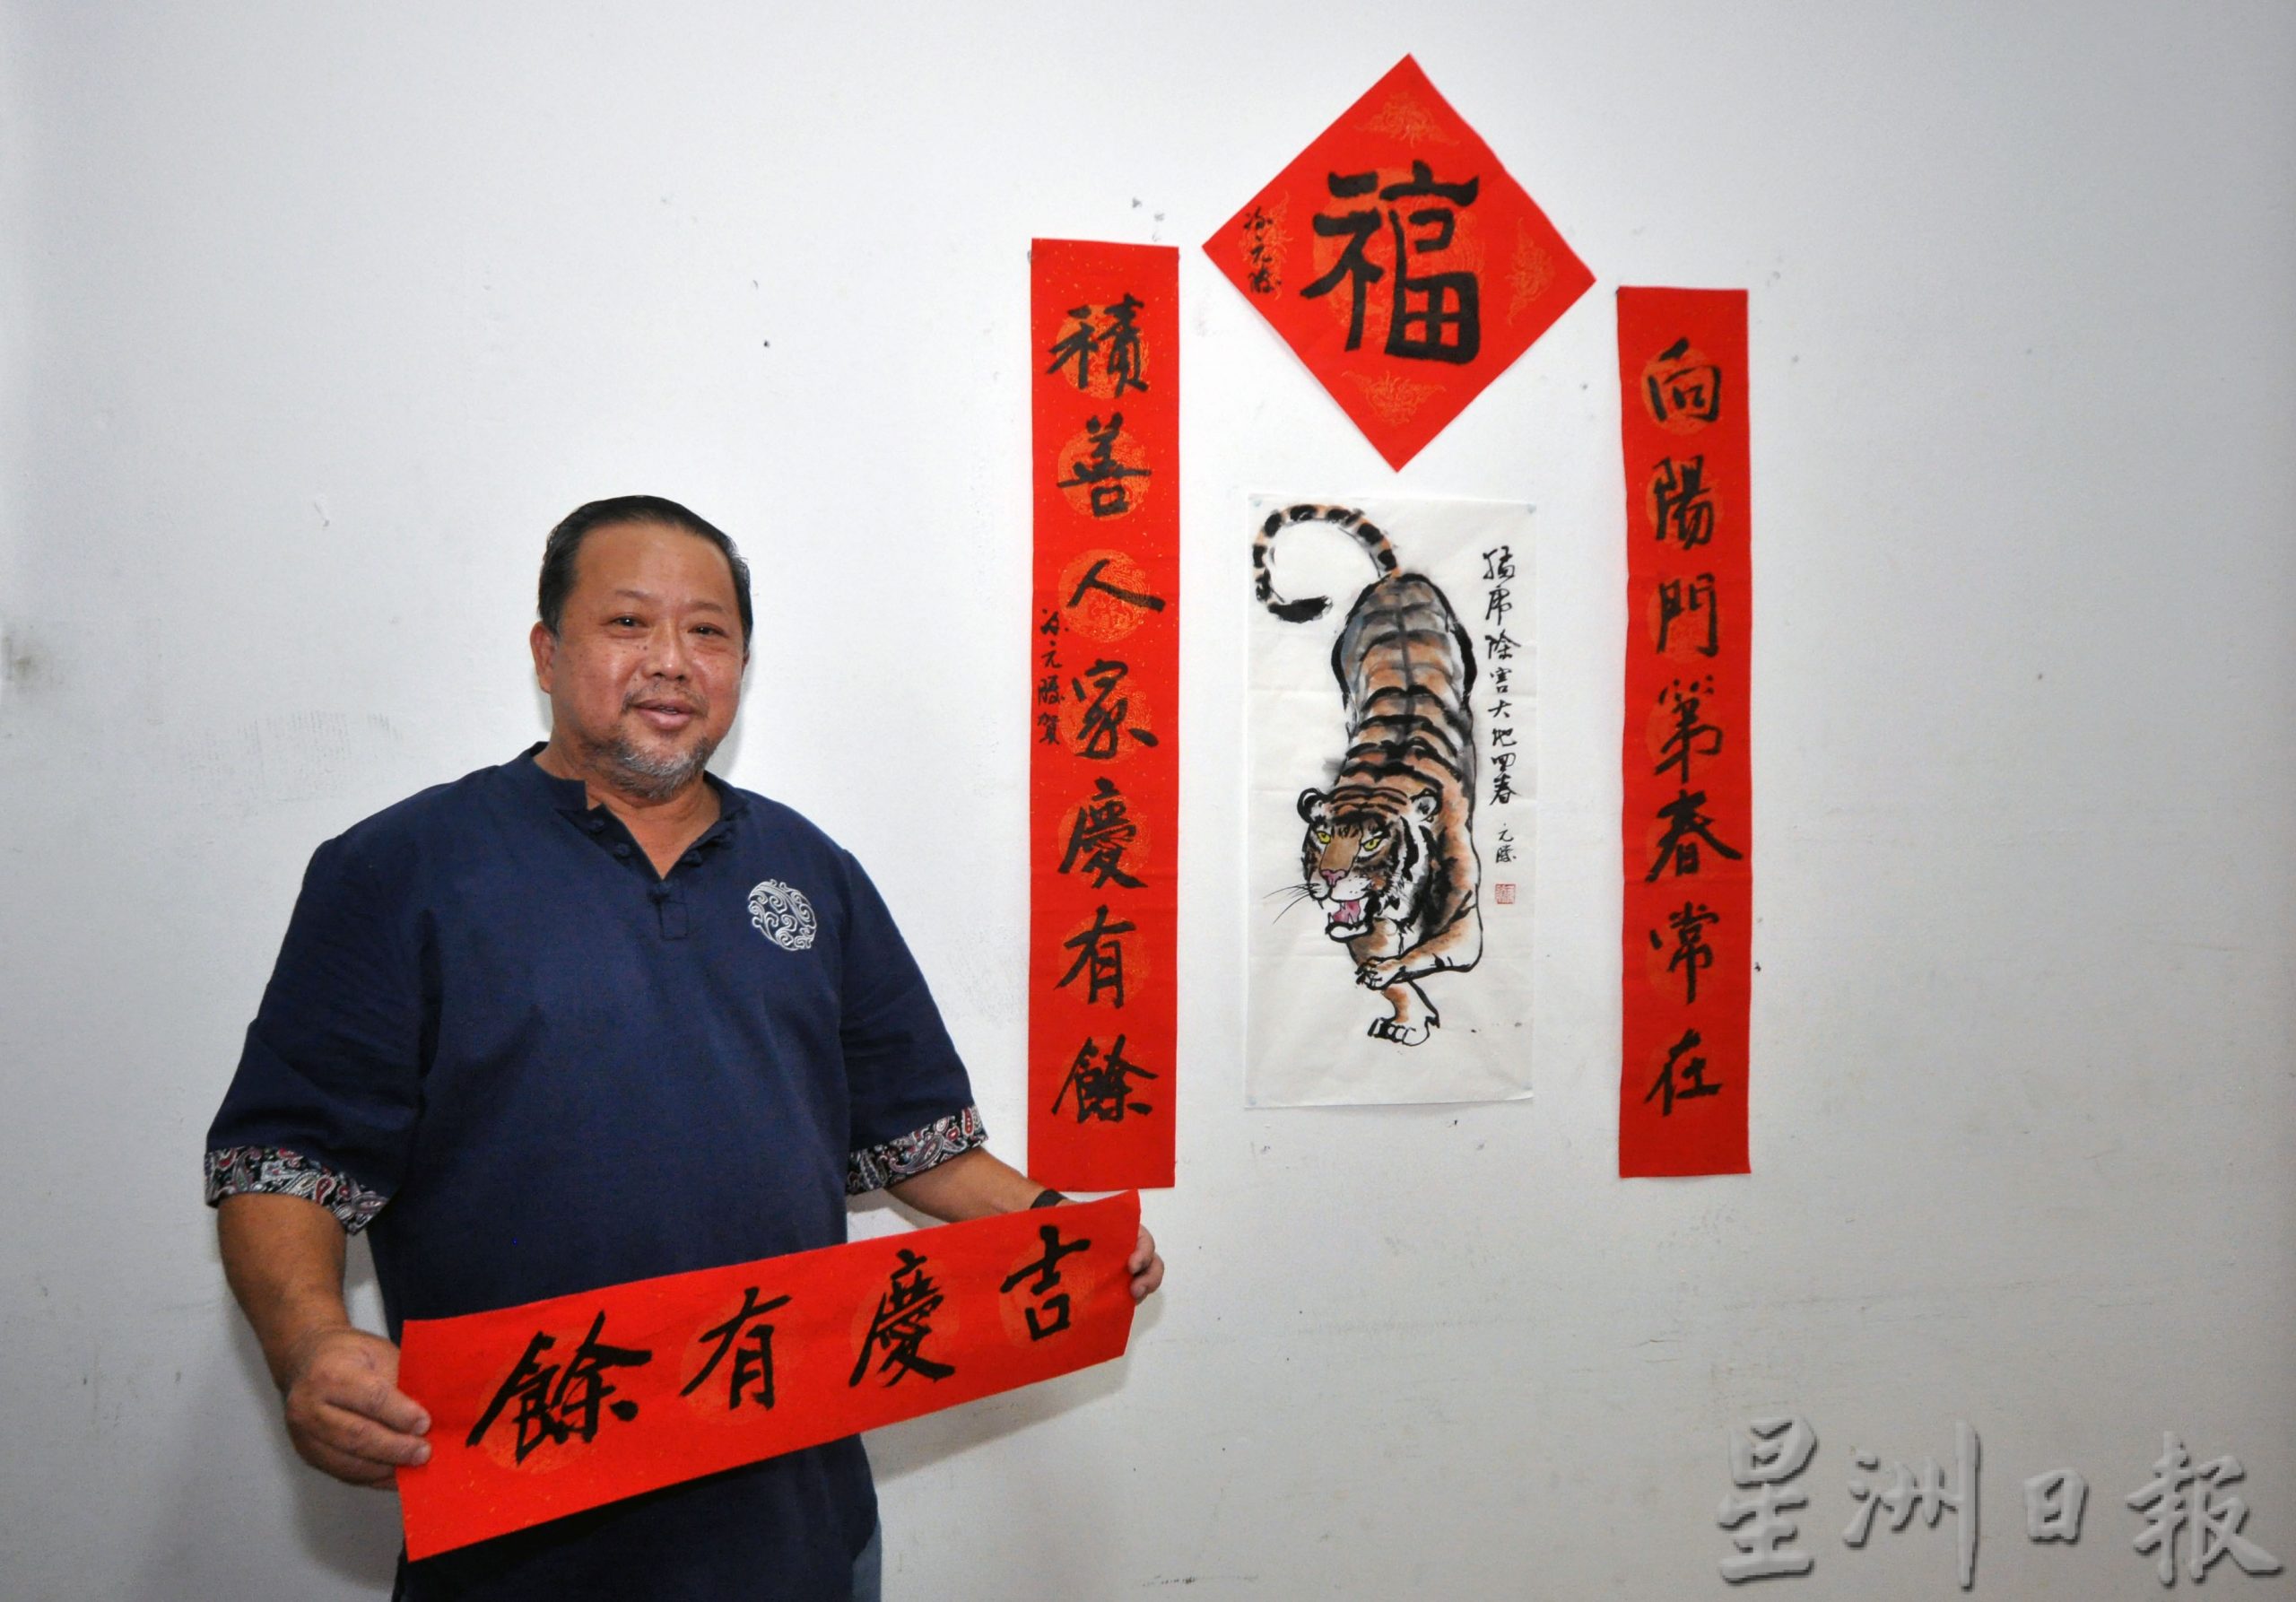 福
涂元勝
向陽門第春常在
積善人家慶有餘
涂元勝賀
猛虎除害大地回春
元勝
吉慶有餘
星洲日報